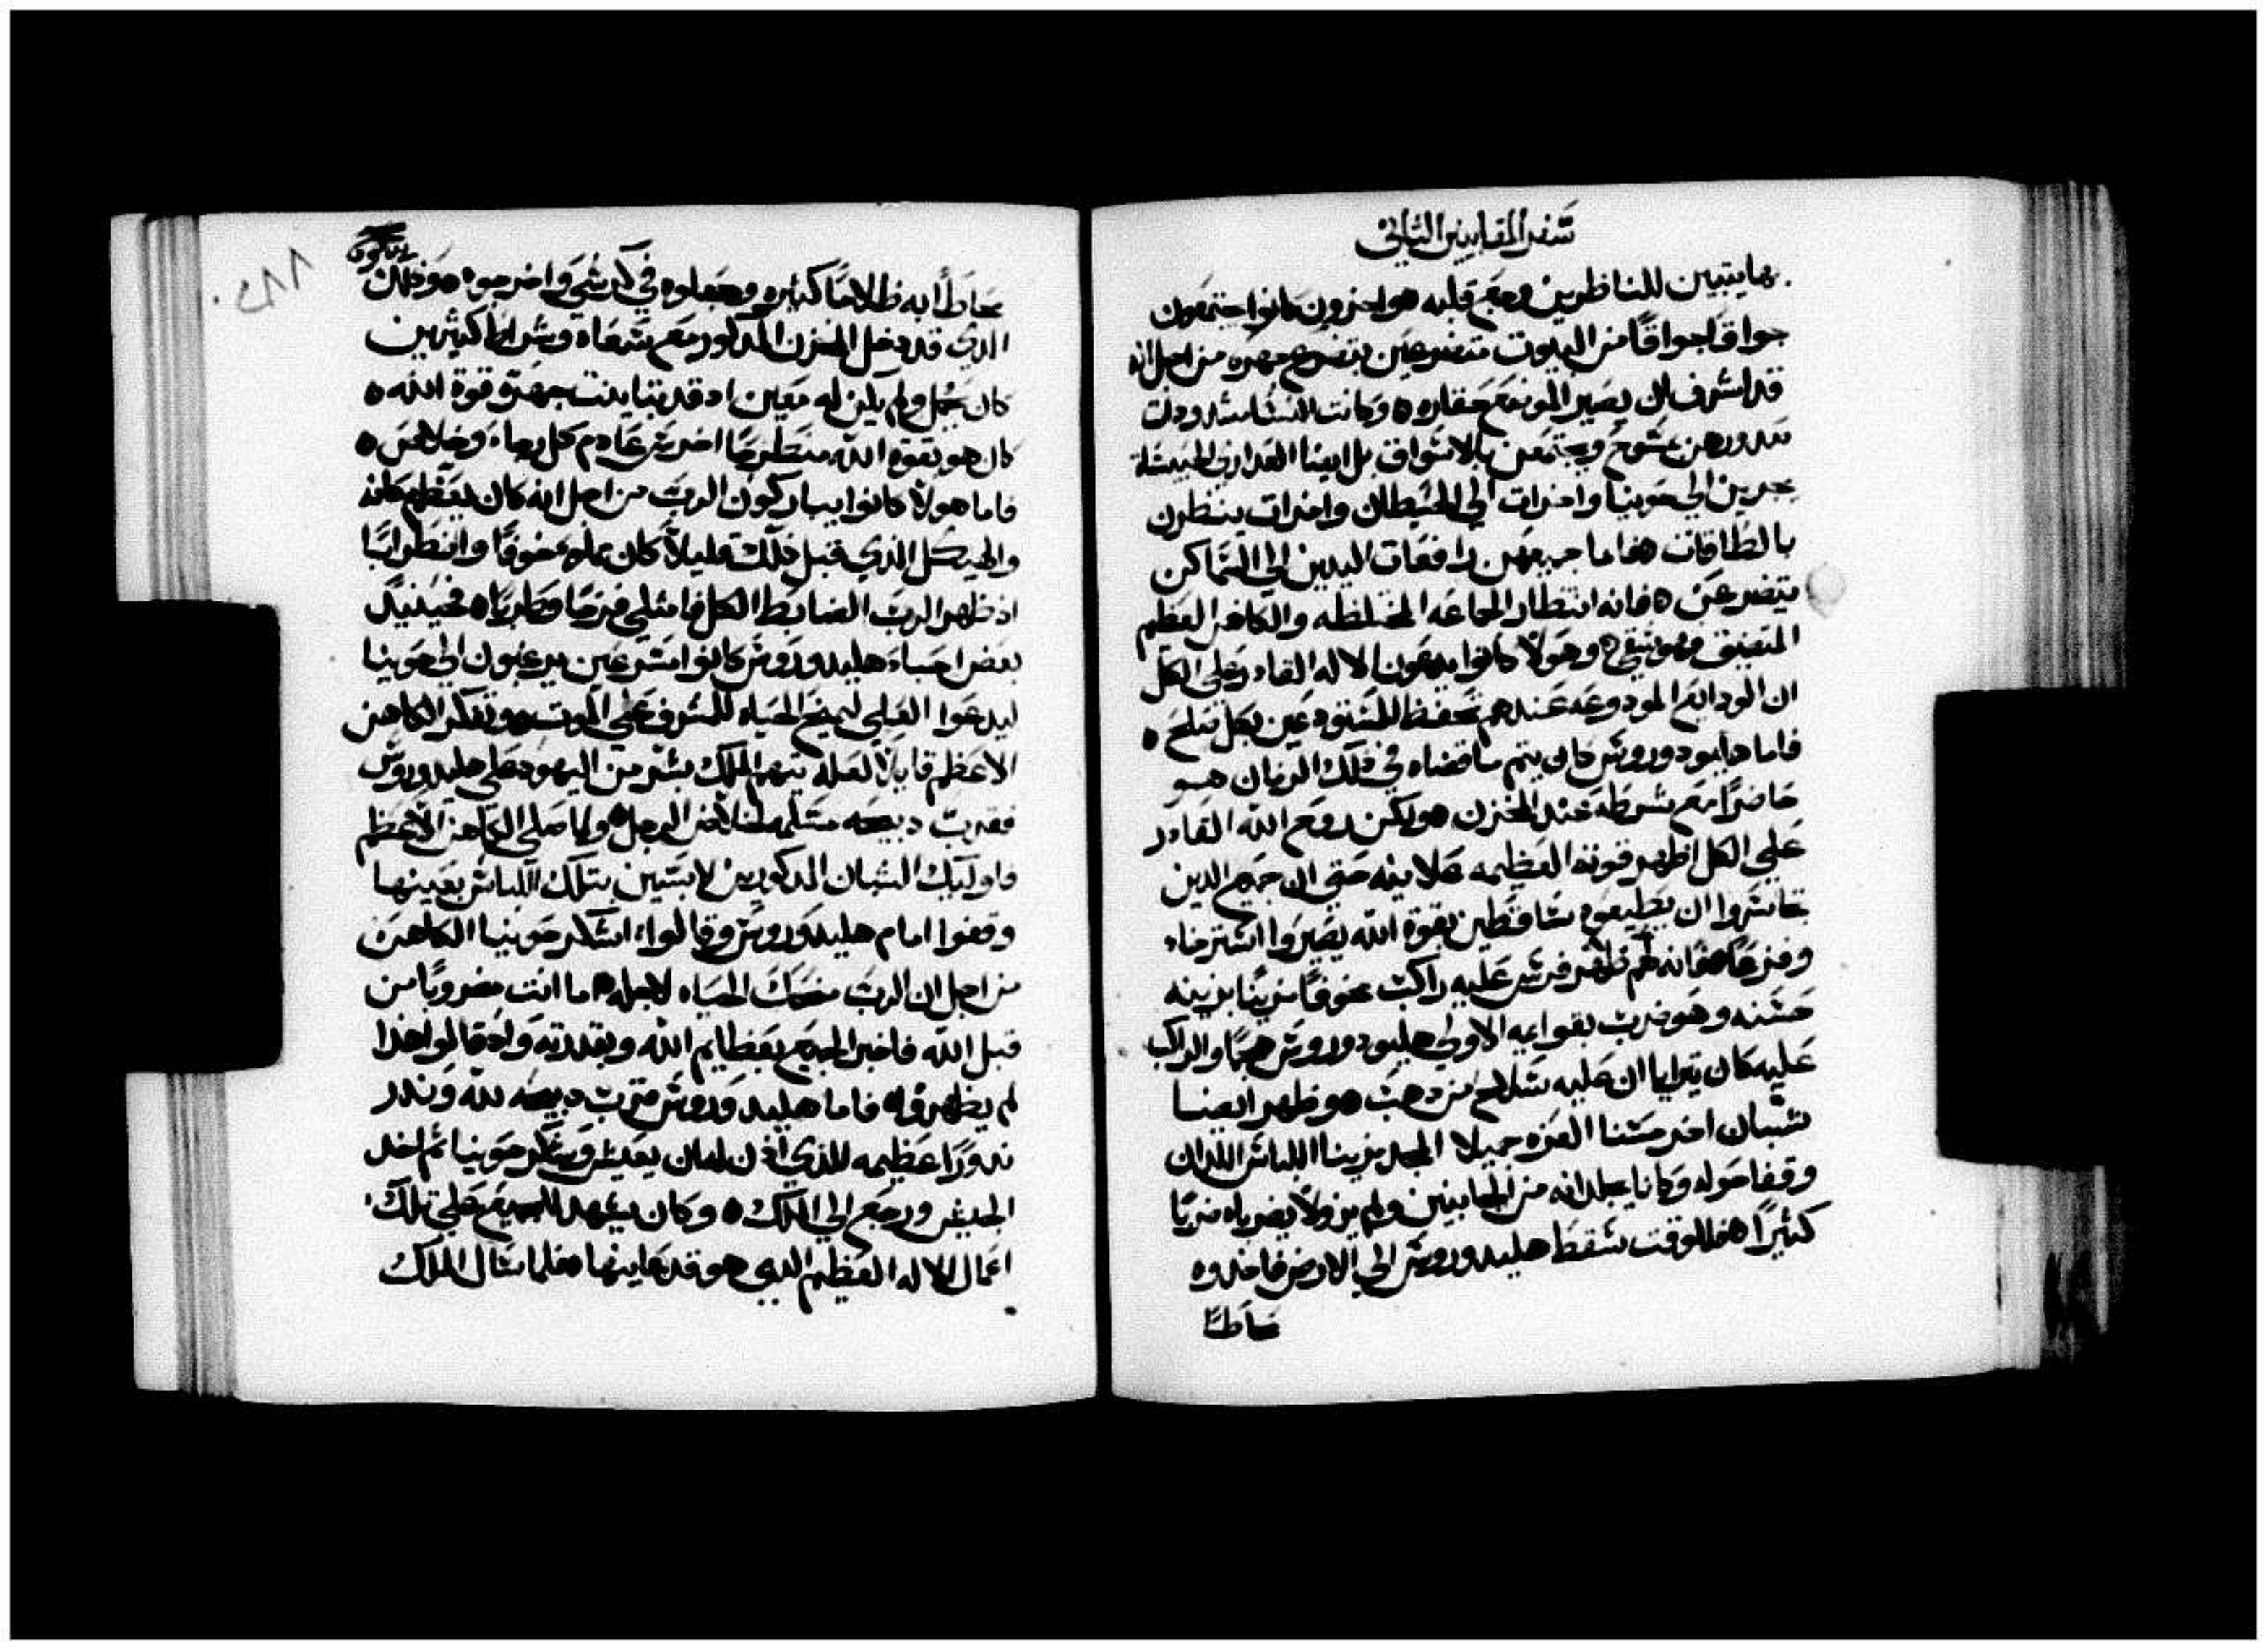 سفر المقابيين الثاني
بها يتبين للناظرين وجع قلبه ه واخرون كانوا يجتمعون
جواقا جواقا من البيوت متضرعين بتضرع جهره من اجل انه
قد اشرف ان يصير الموضع حقاره ه وكانت النسا مشدودات
صدورهن بمسوح ويجتمعن بالاسواق بل ايضا العداري الحبيسه
يجرين الي حونيا واخرات الي الحيطان واخرات ينظرن
بالطاقات ه فاما جميعهن رافعات اليدين الي السما كن
يتضرعن ه فانه انتظار الجماعه المختلطه والكاهن العظيم
المتضيق هو شقي ه وهولا كانوا يدعون الاله القادر علي الكل
ان الودايع المودوعه عندهم تحفظ للمستودعين بكل صلح ه
فاما هليودوروس كان يتم ما قضاه في ذلك الزمان هو
حاضرا مع شرطه عند المخزن ه ولكن روح الله القادر
علي الكل اظهر قوته العظيمه علانيه حتي ان جميع الدين
تجاسروا ان يطيعوه ساقطين بقوة الله يصيروا استرخاء
وفزعا ه فانه لهم ظهر فرس عليه راكب مخوفا مزينا بزينه
حسنه وهو ضرب بقوايمه الاولي هليودوروس هجما والراكب
عليه كان يترايا ان عليه سلاح من دهب ه وظهر ايضا
شبان اخر حسنا العزه جميلا المجد مزينا اللباس اللدان
وقفا حوله وكانا يجلدانه من الجانبين ولم يزولا يضرباه ضربا
كثيرا ه فللوقت سقط هليدوروس الي الارض فاخدوه
محاطا
محاطا به ظلاما كثيره وجعلوه في كرسي واخرجوه ه وذلك
الذي قد دخل المخزن المدكور مع سعاه وشراط كثيرين
كان يحمل ولم يكن له معين اد قد تباينت جهتو قوة الله ه
كان هو بقوة الله منطرحا اخرس عادم كل رجاء وخلاص ه
فاما هولا كانوا يباركون الرب من اجل انه كان يعظم مكانه
والهيكل الذي قبل ذلك قليلا كان مملوء خوفا واضطرابا
اذ ظهر الرب الضابط الكل فامتلي فرحا وطربا ه فحينيد
بعض احباء هليدوروس كانوا مسرعين يرغبون الي حونيا
ليدعوا العلي ليمنح الحياه للمشرف علي الموت ه وتفكر الكاهن
الاعظم قايلا لعله يتهم الملك بشر من اليهود علي هليدوروس
فقرب دبيحه مسلمه لخلاص الرجل ه ولما صلي الكاهن الاعظم
فاوليك الشبان المدكورين لابسين بتلك اللباس بعينها
وقفوا امام هليدوروس وقالوا اشكر حونيا الكاهن
من اجل ان الرب منحك الحياه لاجله ه اما انت مضروبا من
قبل الله فاخبر الجميع بعظايم الله وبقدرته واد قالوا هدا
لم يظهروا ه فاما هليدوروس قرب دبيحه لله وندر
ندورا عظيمه للذي اذن له ان يعيش وشكر حونيا ثم اخد
الجيش ورجع الي الملك ه وكان يشهد للجميع علي تلك
اعمال الاله العظيم الدي هو قد عاينها ه فلما سال الملك